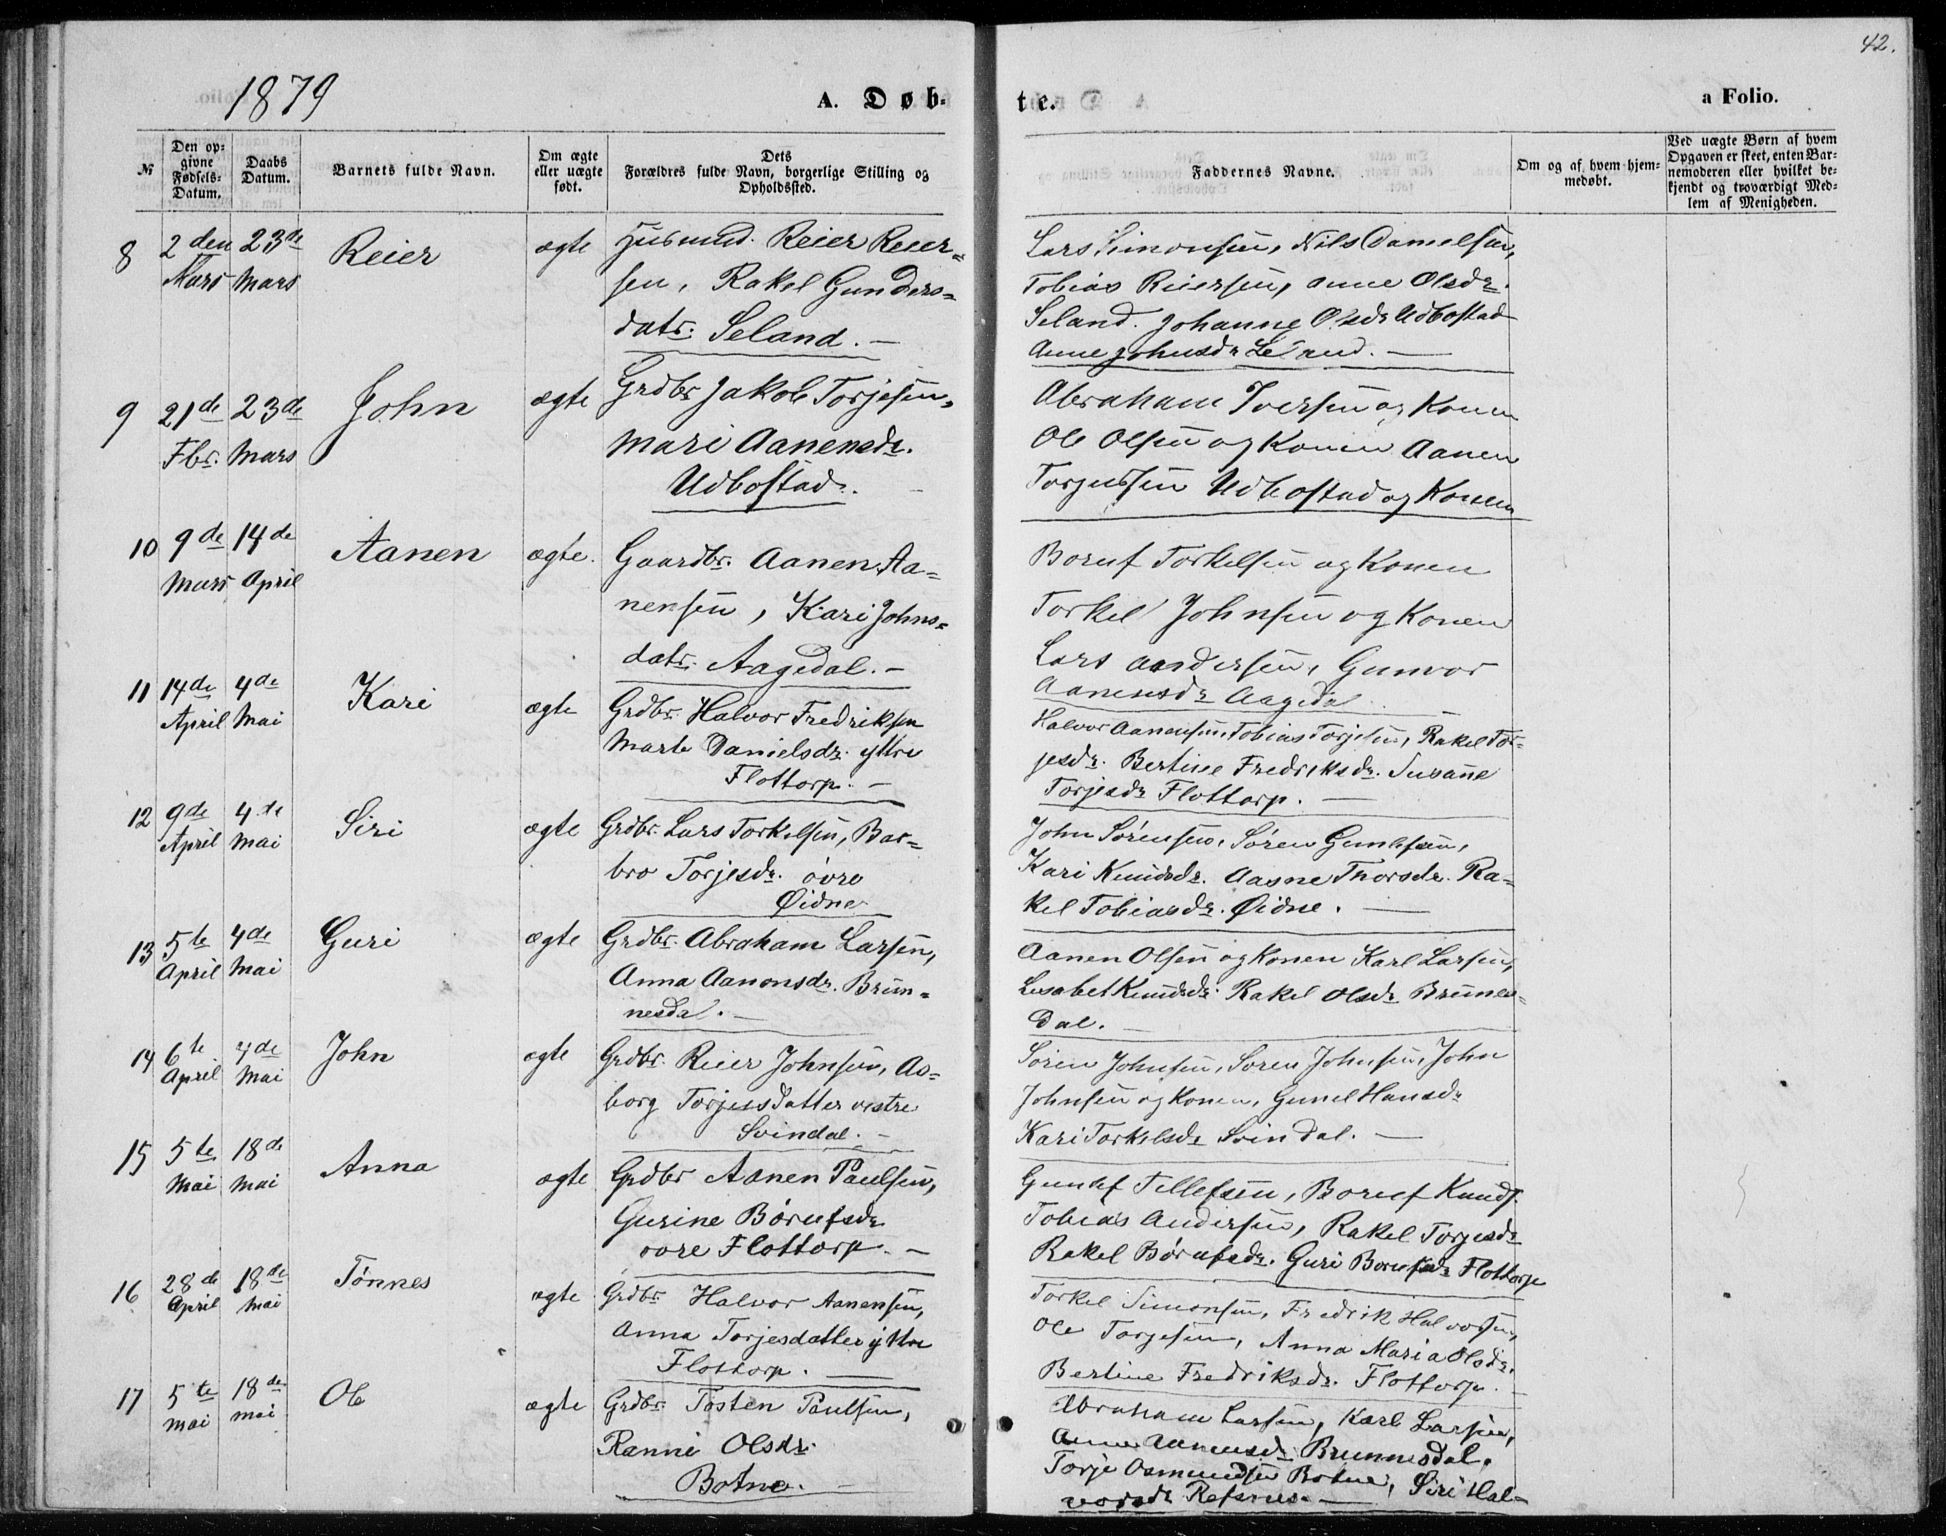 42.
1879
A. Døb-
te.
a Folio.
№
Den op-
givne
Fødsels-
Datum.
Daabs
Datum.
Barnets fulde Navn.
Om ægte
eller uægte
født.
Dets
Forældres fulde Navn, borgerlige Stilling og
Opholdssted.
Faddernes Navne.
Om og af hvem hjem-
medøbt.
Ved uægte Børn af hvem
Opgaven er skeet, enten Bar-
nemoderen eller hvilket be-
kjendt og troværdigt Med-
lem af Menigheden.
8 2den 23de Reier ægte Husmd. Reier Reier-
Mars Mars sen, Rakel Gunders-
datr. Seland. —
Lars Simonsen, Nils Danielsen,
Tobias Reiersen, Anne Olsdr.
Seland. Johanne Olsdr Udbostad
Anne Johnsdr Seland. —
9 21de 23de John ægte Grdbr Jakob Torjesen,
Fbr. Mars Mari Aanensdr.
Udbostad.
Abraham Iversen og Konen
Ole Olsen og Konen Aanen
Torjussen Udbostad og Konen
10 9de 14de Aanen ægte. Gaardbr. Aanen Aa-
Mars April nensen, Kari Johns-
datr. Aagedal. —
Boruf Torkelsen og Konen
Torkel Johnsen og Konen
Lars Andersen, Gunvor
Aanensdr Aagedal
11 14de 4de Kari ægte Grdbr. Halvor Fredriksen
April Mai Marte Danielsdr. yttre
Flottorp. —
Halvor Aanensen, Tobias Torjesen, Rakel Tor-
jesdr. Bertine Fredriksdr. Susane
Torjesdr Flottorp. —
12 9de 4de Siri ægte Grdbr. Lars Torkelsen, Bar-
April Mai bro Torjesdr. øvre
Øidne
John Sørensen, Søren Gunlefsen,
Kari Knudsdr. Aasne Thorsdr. Ra-
kel Tobiasdr. Øidne. —
13 5te 4de Guri ægte Grdbr. Abraham Larsen,
April Mai Anna Aanonsdr. Brun-
nesdal. —
Aanen Olsen og Konen Karl Larsen,
Lisabet Knudsdr. Rakel Olsdr Brunes-
dal. —
14 6te 4de John ægte Grdbr. Reier Johnsen, As-
April Mai borg Torjusdatter vestre
Svindal. —
Søren Johnsen, Søren Johnsen, John
Johnsen og Konen, Gunel Hansdr
Kari Torkelsdr Svindal. —
15 5te 18de Anna ægte Grdbr Aanen Paulsen,
Mai Mai Gurine Børufsdr
øvre Flottorp. —
Gunlef Tellefsen, Boruf Knuds.
Tobias Andersen, Rakel Torjesdr
Rakel Børufsdr. Guri Borufsdr Flottorp
16 28de 18de Tønnes ægte Grdbr Halvor Aanensen,
April Mai Anna Torjesdatter yttre
Flottorp. —
Torkel Simonsen, Fredrik Halvorsen,
Ole Torjesen, Anna Maria Olsdr.
Bertine Fredriksdr. Flottorp. —
17 5te 18de Ole ægte Grdbr. Tosten Paulsen,
Mai Mai Ranni Olsdr.
Botne. —
Abraham Larsen, Karl Larsen,
Anne Aanensdr Brunnesdal.
Torje Osmundsen Botne, Siri Hal-
vorsdr Refsnes. —